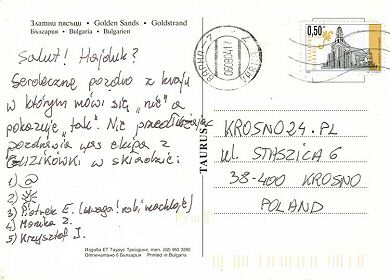 Златни пясъци • Golden Sands • Goldstrand
България • Bulgaria • Bulgarien
Salut! Hajduk?
Serdeczne pozdro z kraju
w którym mówi się „nie" a
pokazuje „tak". Nie przedłużając
pozdrawia was ekipa z
GUZIKÓWKI w składzie:
1) @
2)
3) Piotrek E. (uwaga! robi
4) Monika Z.
5) Krzysztof J.
TAURUS
0,50
KROSNO24.PL
ul. STASZICA 6
38-400 KROSNO
POLAND
Издава ЕТ Таурус Трейдинг, тел. (02) 963 3280
Отпечатано в България Printed in Bulgaria